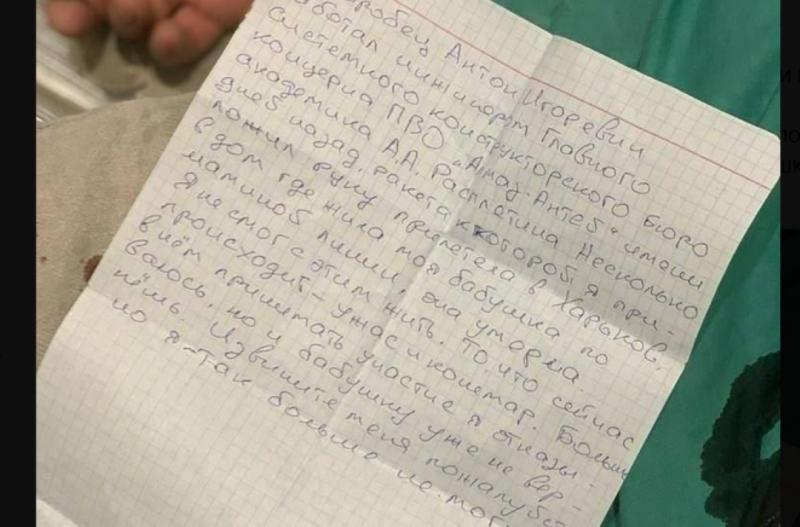 робец Антон Игоревич
работал инжинером Главного
системного конструкторского бюро
концерна ПВО "Алмаз-Антей" имени
академика А.А. Расплетина. Несколько
дней назад, ракета к которой я при-
ложил руку прилетела в Харьков,
в дом где жила моя бабушка по
маминой линии, она умерла.
Я не смог с этим жить. То, что сейчас
происходит - ужас и кошмар. Больше
в нём принимать участие я отказы-
ваюсь, но и бабушку уже не вер-
нёшь. Извините меня пожалуйст
но я так больше не мог